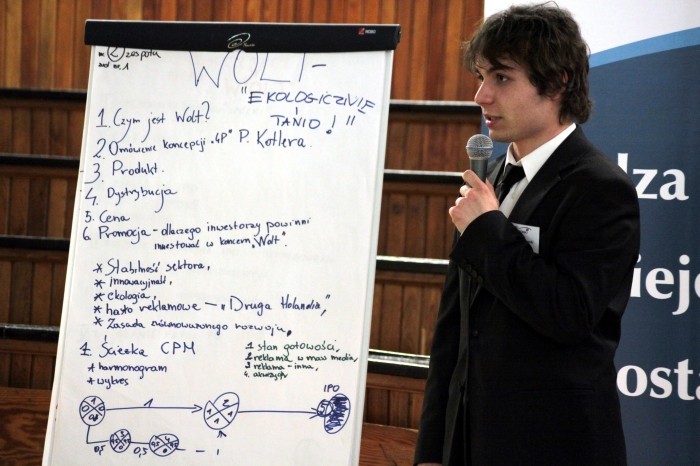 zespołu
WOLT -
"EKOLOGICZNIE
i
TANIO!"
1. Czym jest Wolt?
2. Omówienie koncepcji „4P” P. Kotlera.
3. Produkt.
4. Dystrybucja
5. Cena
6. Promocja - dlaczego inwestorzy powinni
inwestować w koncern „Wolt”.
* Stabilność sektora,
* innowacyjność,
* ekologia,
* hasło reklamowe - „Druga Holandia”,
* Zasada zrównoważonego rozwoju,
1. Ścieżka CPM
* harmonogram
* wykres
1 stan gotowości,
2 reklama w mass media,
3 reklama - inna,
4.
1
2
IPO
0,5
0,5
dza
iej
osta